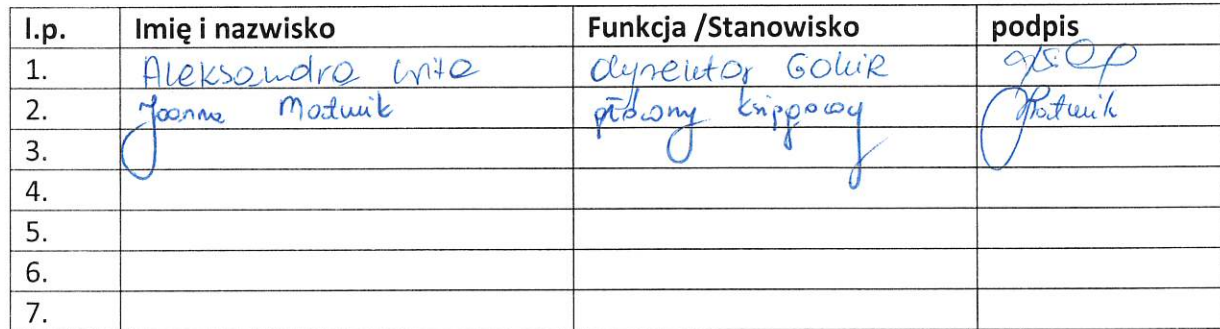 l.p. Imię i nazwisko Funkcja /Stanowisko podpis
1. Aleksandra dyrektor GOKiR
2. Joanna główny księgowy
3.
4.
5.
6.
7.